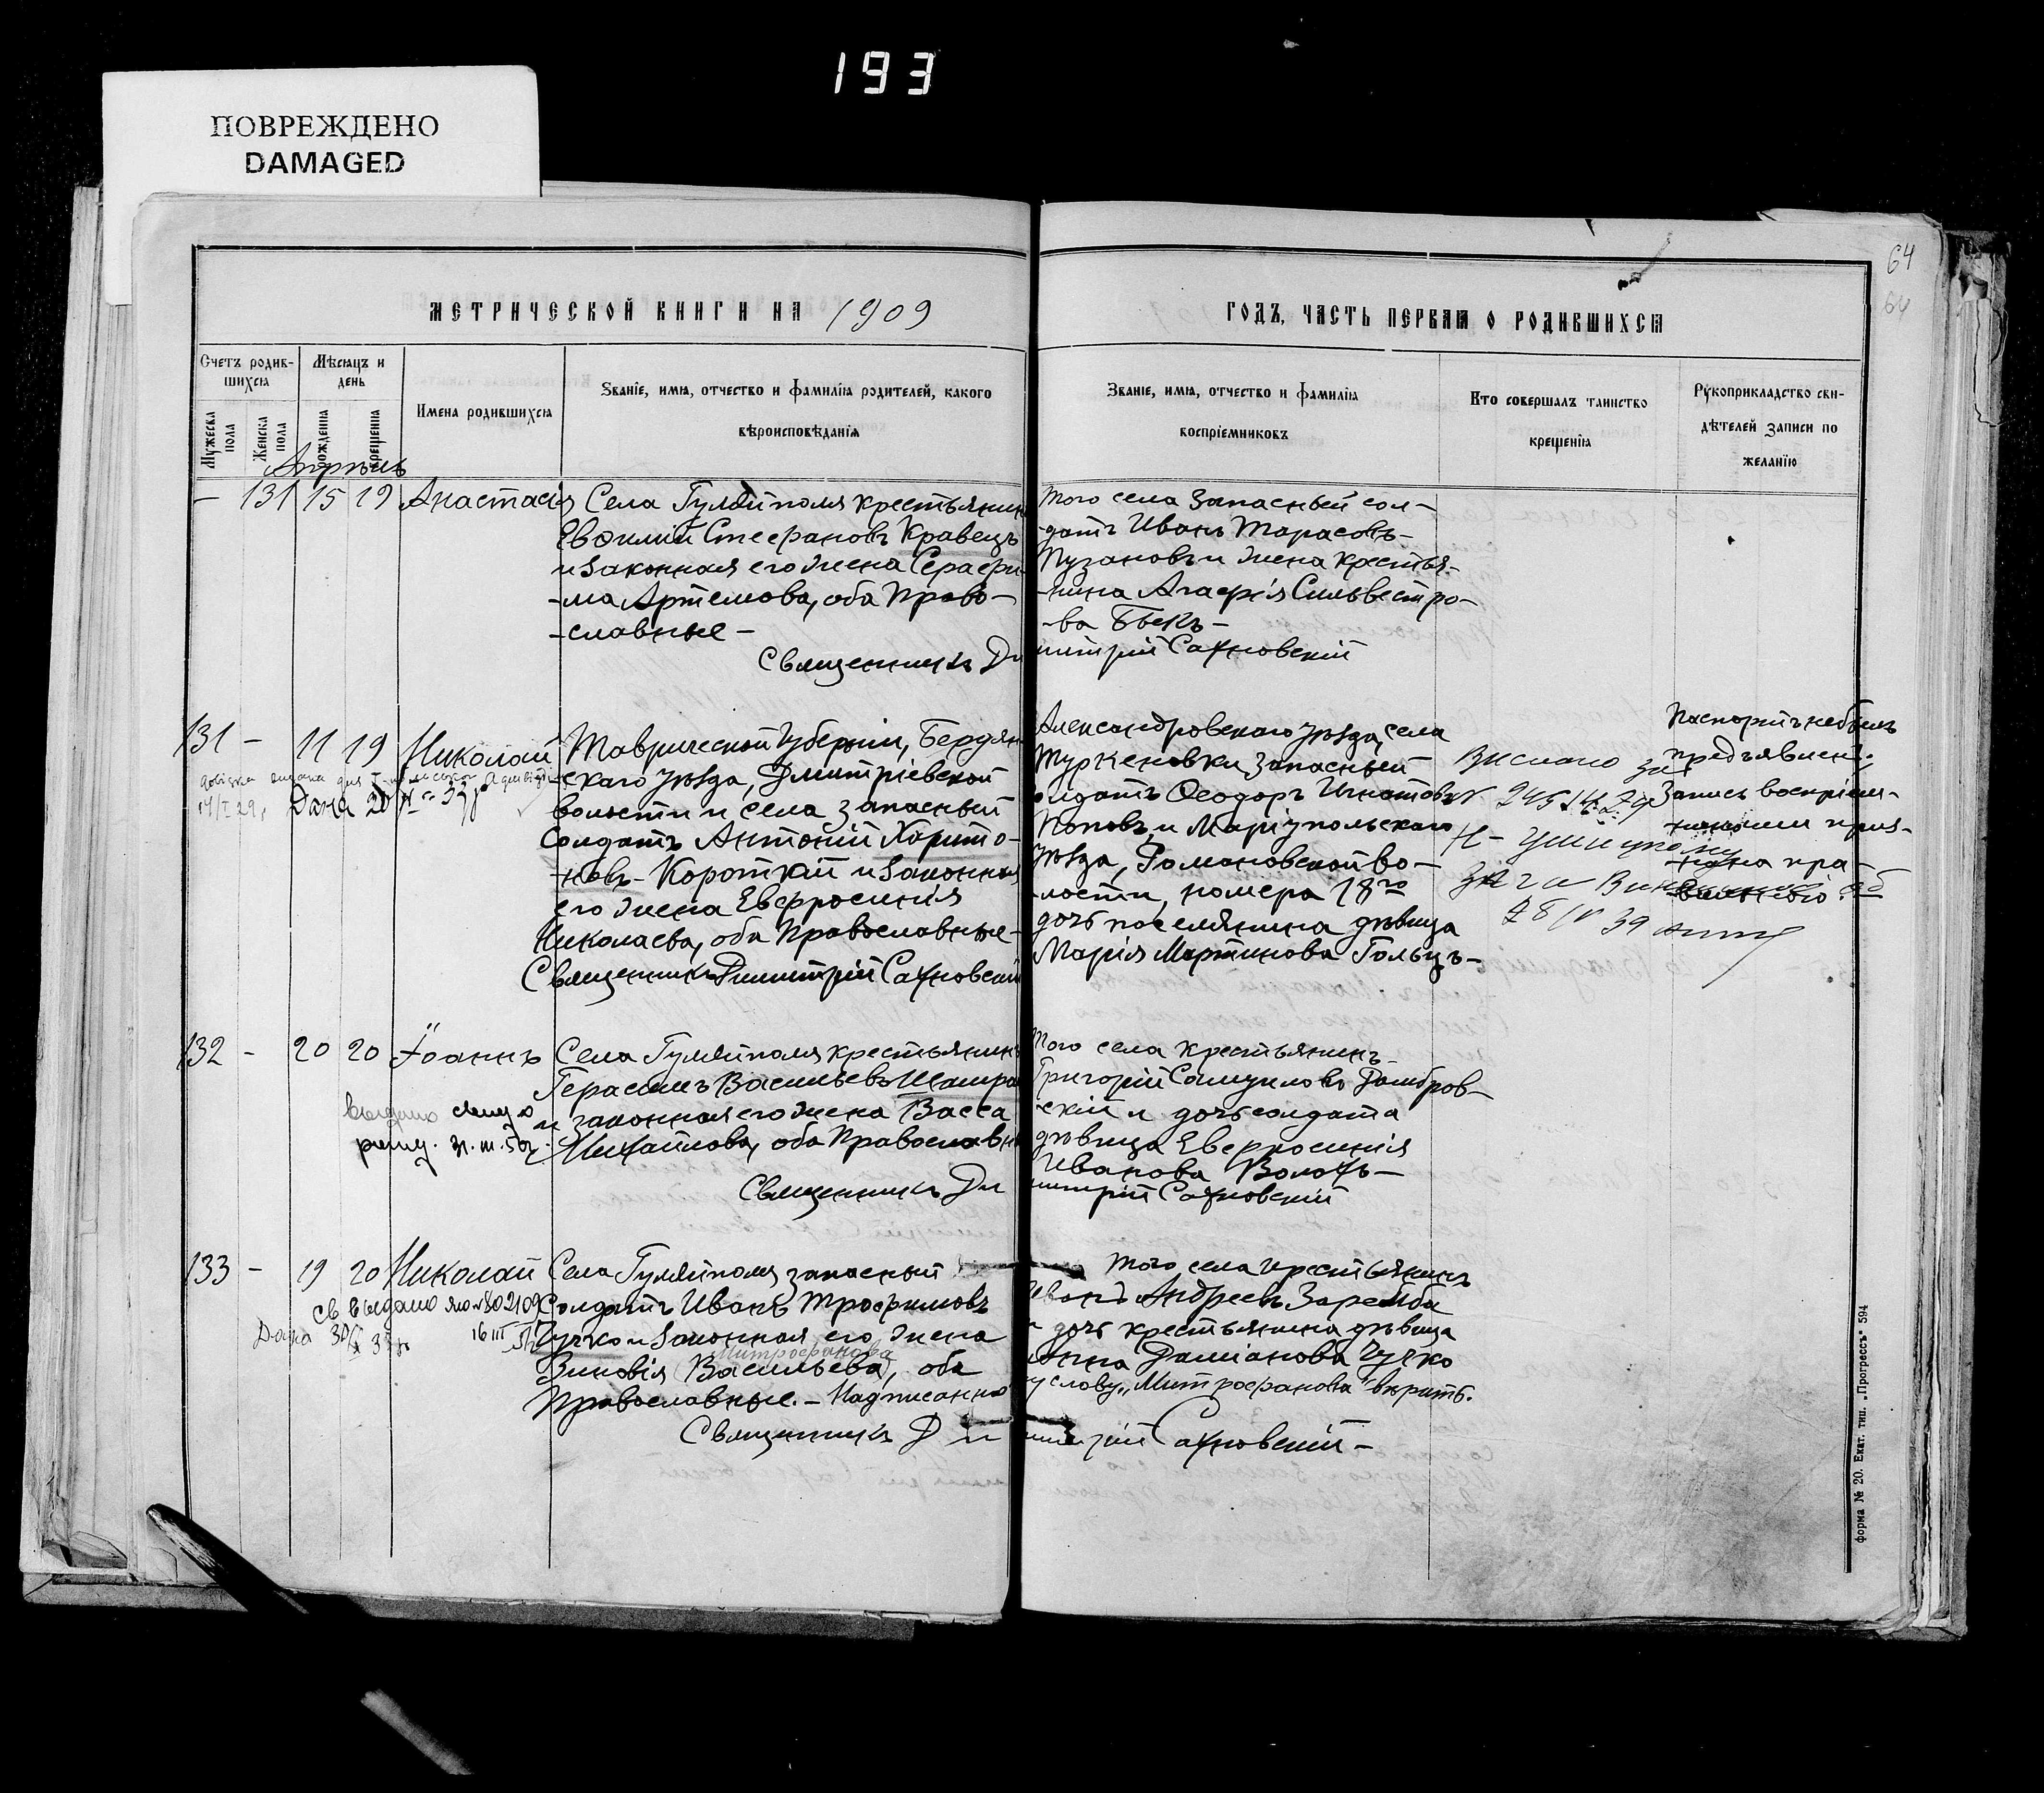 193
ПОВРЕЖДЕНО
DAMAGED
64
64
МЕТРИЧЕСКОЙ КНИГИ НА 1909
ГОДЪ, ЧАСТЬ ПЕРВАЯ О РОДИВШИХСЯ
Счетъ родив-
шихся
Мужеска пола
Женска пола
Мѣсяцъ и
день
рожденія
крещенія
Имена родившихся
Званіе, имя, отчество и фамилія родителей, какого
вѣроисповѣданія
Званіе, имя, отчество и фамилія
воспріемниковъ
Кто совершалъ таинство
крещенія
Рукоприкладство сви-
дѣтелей записи по
желанію
Апрѣль
– 131 15 19 Анастасія
Села Гуляйполя крестьянинъ
Евфимій Стефановъ Кравецъ
и законная его жена Серафи-
-ма Артемова, оба Право-
-славные –
Того села запасный сол-
-датъ Иванъ Тарасовъ-
Пузановъ и жена крестья-
-нина Агафія Сильвестро-
-ва Бѣкъ –
Священникъ Димитрій Сахновскій
131 – 11 19 Николай
14/I 29.
Дана
Таврической Губерніи, Бердян-
-скаго уѣзда, Дмитріевской
волости и села запасный
солдатъ Антоній Харито-
-новъ-Короткій и законная
его жена Евфросинія
Николаева, оба Православные –
Священникъ Димитрій Сахновскій
Александровскаго уѣзда, села
Туркеновки запасный
солдатъ Феодоръ Игнатовъ
Поповъ и Маріупольскаго
уѣзда, Романовской во-
-лости, номера 18го
дочь поселянина дѣвица
Марія Мартинова Гольцъ –
Паспортъ небылъ
предъявленъ.
Запись воспріем-
132 – 20 20 Іоаннъ
выдано
Села Гуляйполя крестьянинъ
Герасимъ Васильевъ Шапра
и законная его жена Васса
Михайлова, оба Православн
Того села крестьянинъ
Григорій Самуиловъ Домбров-
-скій и дочь солдата
дѣвица Евфросинія
Иванова Волохъ –
Священникъ Димитрій Сахновскій
133 – 19 20 Николай
св выдано
Дана
Села Гуляйполя запасный
Солдатъ Иванъ Трофимовъ
Чучко и законная его жена
Митрофанова
Зиновія (Васильева), оба
Православные. – Надписанно
Того села крестьянинъ
Иванъ Андреевъ Заремба
и дочь крестьянина дѣвица
Анна Даміанова Чучко
у слову „Митрофанова" вѣрить.
Священникъ Димитрій Сахновскій –
форма № 20. Екат. тип. „Прогрессъ" 594